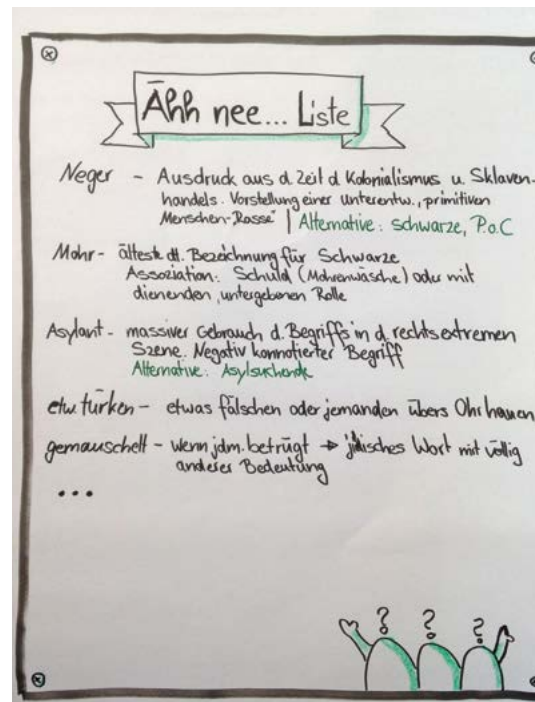 Ähh nee... Liste
Neger - Ausdruck aus d. Zeit d Kolonialismus u. Sklaven-
handels. Vorstellung einer unterentw., primitiven
Menschen-Rasse | Alternative: schwarze, P.o.C
Mohr - älteste dt. Bezeichnung für Schwarze
Assoziation: Schuld (Mohrenwäsche) oder mit
dienenden, untergebenen Rolle
Asylant - massiver Gebrauch d. Begriffs in d. rechtsextremen
Szene. Negativ konnotierter Begriff
Alternative: Asylsuchende
etw. türken - etwas fälschen oder jemanden übers Ohr hauen
gemauschelt - wenn jdm. betrügt → jidisches Wort mit völlig
anderer Bedeutung
...
? ? ?